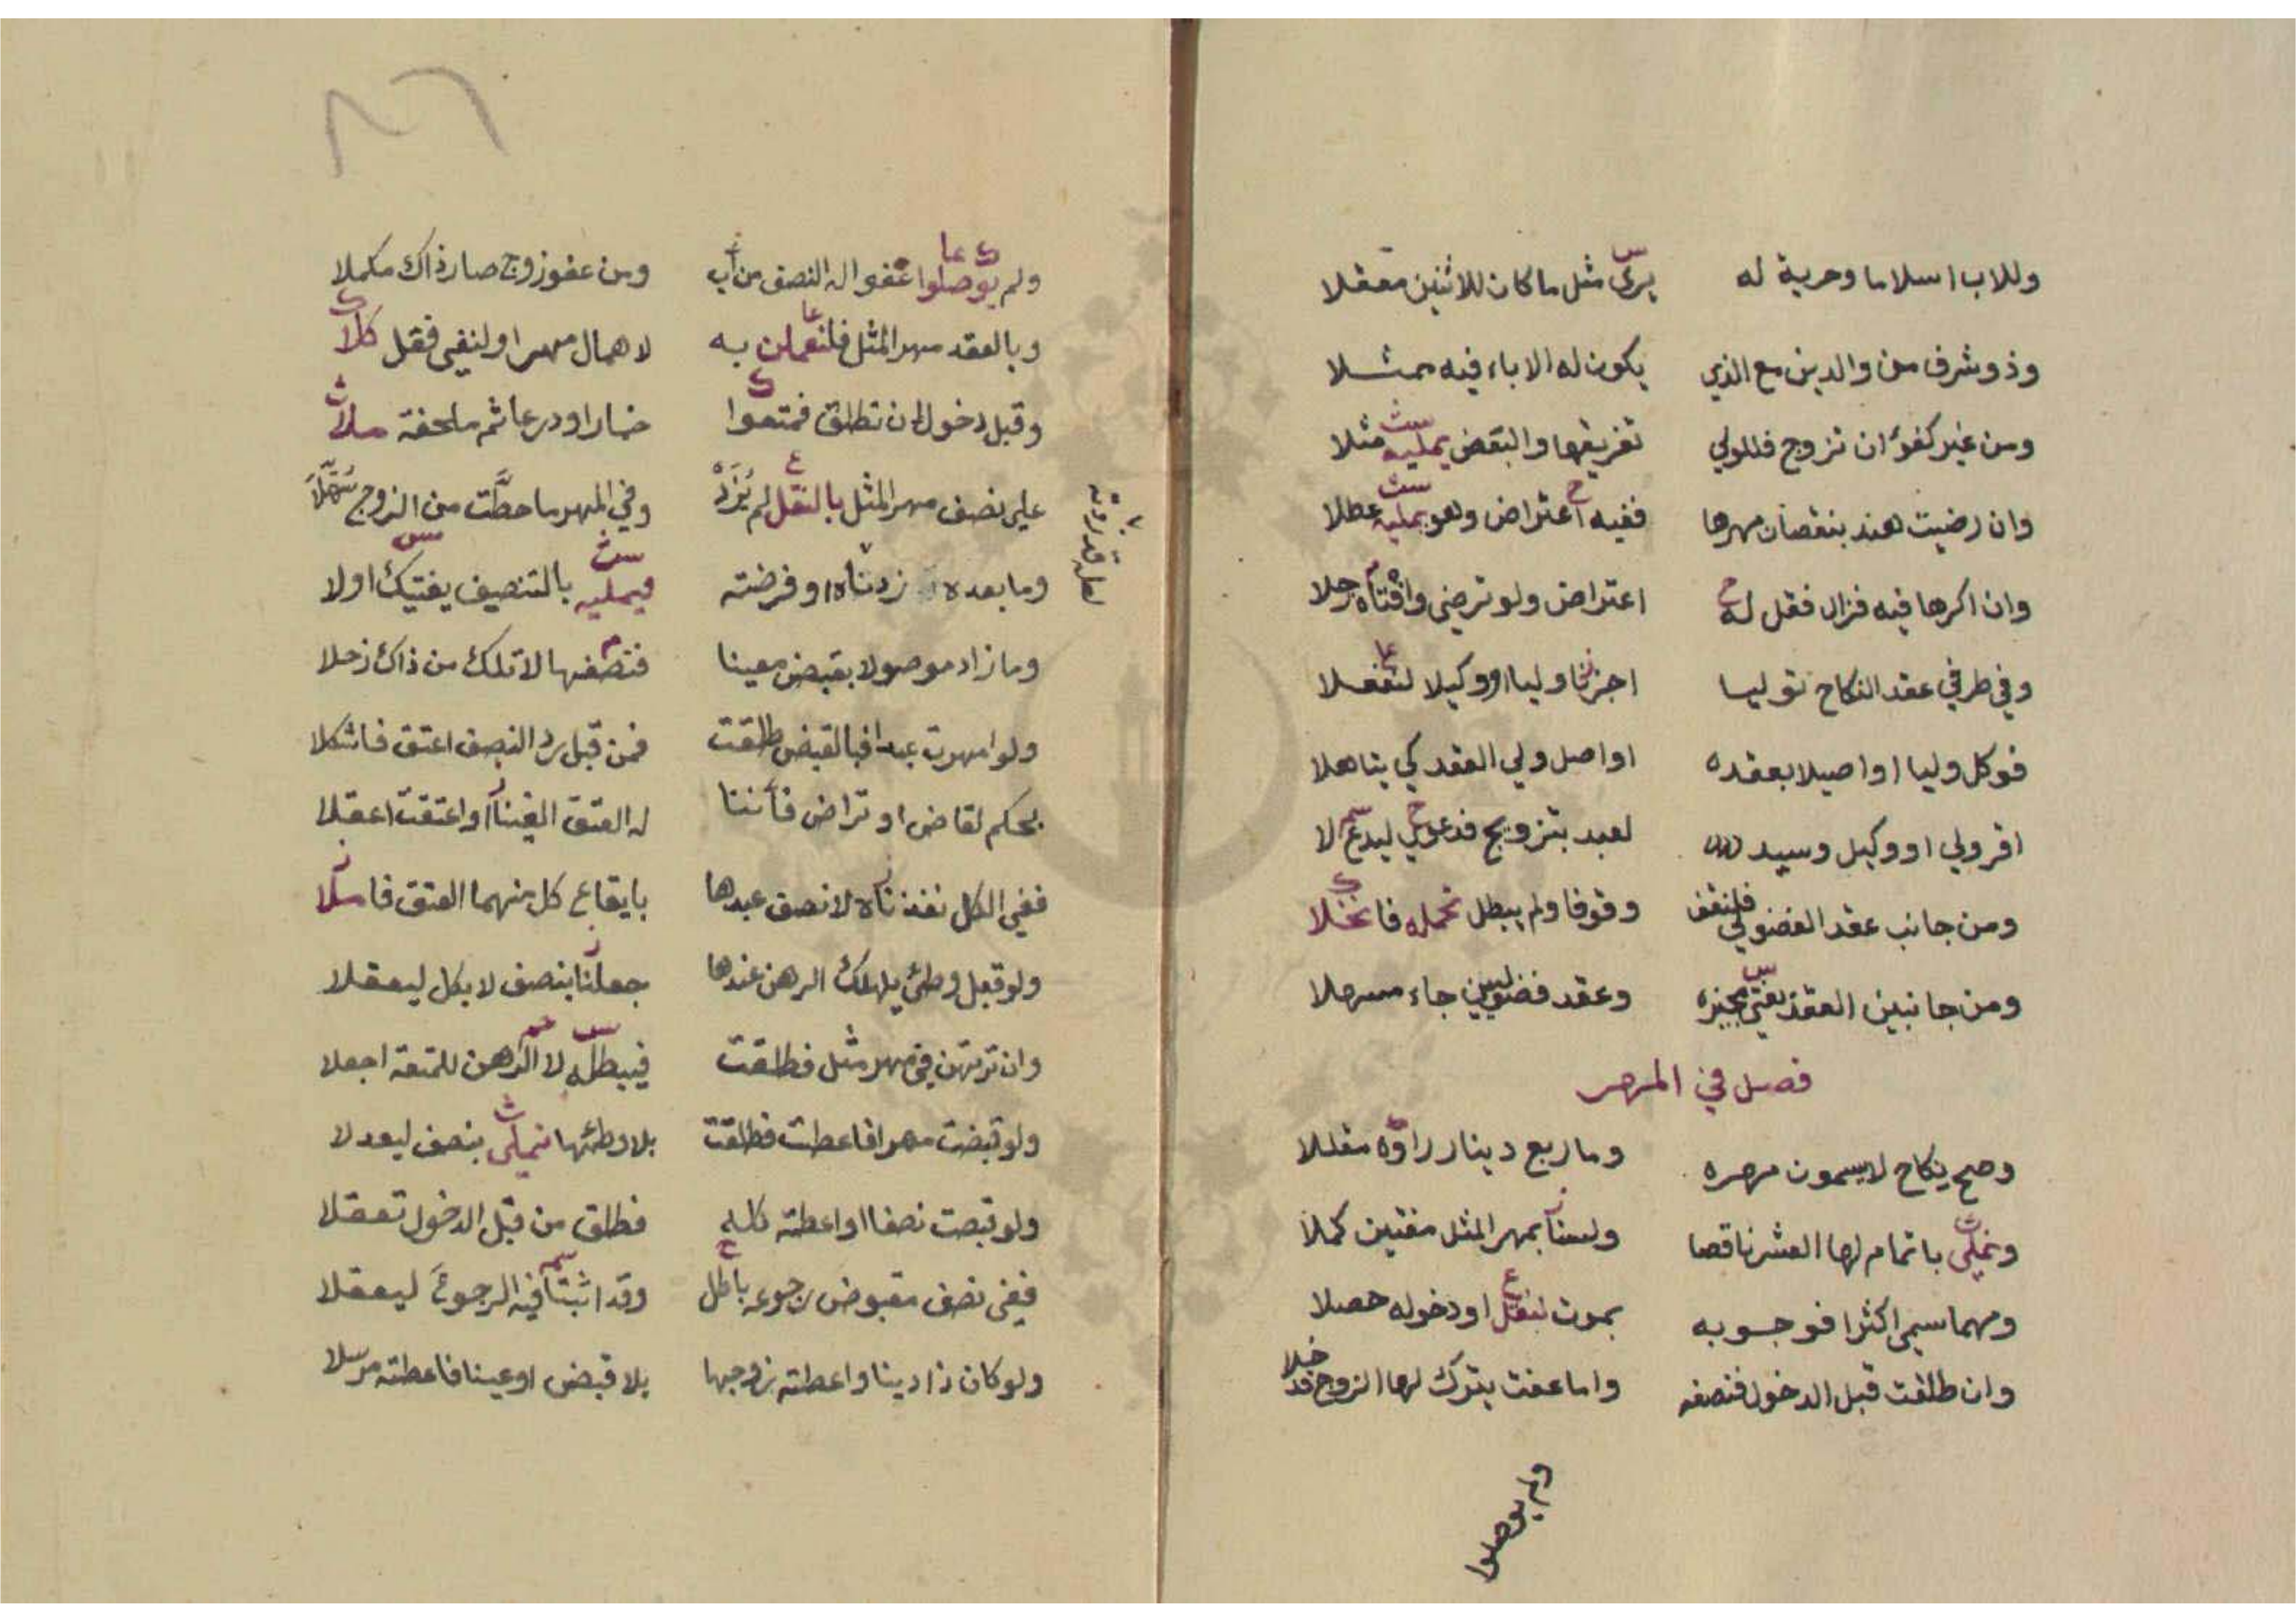 وللاب اسلاما وحرية له يرى مثل ما كان للاثنين معقلا
وذو شرف من والدين مع الذي يكون له الاباء فيه ممثلا
ومن غير كفؤ ان تزوج فللولي تفريقها والبعض يمليه مثلا
وان رضيت هند بنقصان مهرها ففيه اعتراض وهو يمليه عطلا
وان اكرها فيه فزال فقل له اعتراض ولو ترضى وافتاه رجلا
وفي طرفي عقد النكاح توليا اجزنا وليا او وكيلا لتفعلا
فوكل وليا او اصيلا بعقده او اصل ولي العقد كي يتاهلا
اقر ولي او وكيل وسيد لعبد بتزويج فدعوي ليدع لا
ومن جانب عقد الفضولي فلنقف وقوفا ولم يبطل تحمله فانحلا
ومن جانبين العقد يفتي مجيزه وعقد فضوليين جاء مسهلا
فصل في المهر
وصح نكاح لا يسمون مهره وما ربع دينار راوه مقللا
ونملي باتمام لها العشر ناقصا ولسنا بمهر المثل مفتين كملا
ومهما سمي اكثرا فوجوبه بموت لنقل او دخوله حصلا
وان طلقت قبل الدخول فنصفه واما عفت بترك لها الزوج قد خلا
ولم يوصلوا
ولم يوصلوا عفوا له النصف من اب ومن عفو زوج صار ذاك مكملا
وبالعقد مهر المثل فلنعملن به لاهمال مهر او لنفي فقل كلا
وقبل دخول ان تطلق فمتعوا خمارا ودرعا ثم ملحفة ملا
على نصف مهر المثل بالنقل لم نزد وفي المهر ما حطت من الزوج سهلا
وما بعده زدناه او فرضته فيمليه بالتنصيف يفتيك اولا
لعل قد
وما زاد موصولا بقبض معينا فنصفها لا تلك من ذاك زحلا
ولو امهرت عبدا فبالقبض طلقت فمن قبل رد النصف اعتق فاشكلا
بحكم لقاض او تراض فاننا له العتق الغينا او اعتقت اعقلا
ففي الكل نفذناه لا نصف عبدها بايقاع كل منهما العتق فاسلا
ولو قبل وطئ يهلك الرهن عندها جعلنا بنصف لا بكل ليعقلا
وان ترتهن في مهر مثل فطلقت فيبطله لا الرهن للمتعة اجعلا
ولو قبضت مهرا فاعطت فطلقت بلا وطئها نملي بنصف ليعدلا
ولو قبضت نصفا او اعطته كله فطلق من قبل الدخول تعقلا
ففي نصف مقبوض رجوعه باطل وقد اثبتا فيه الرجوع ليعقلا
ولو كان ذا دينا واعطته زوجها بلا قبض او عينا فاعطته مرسلا